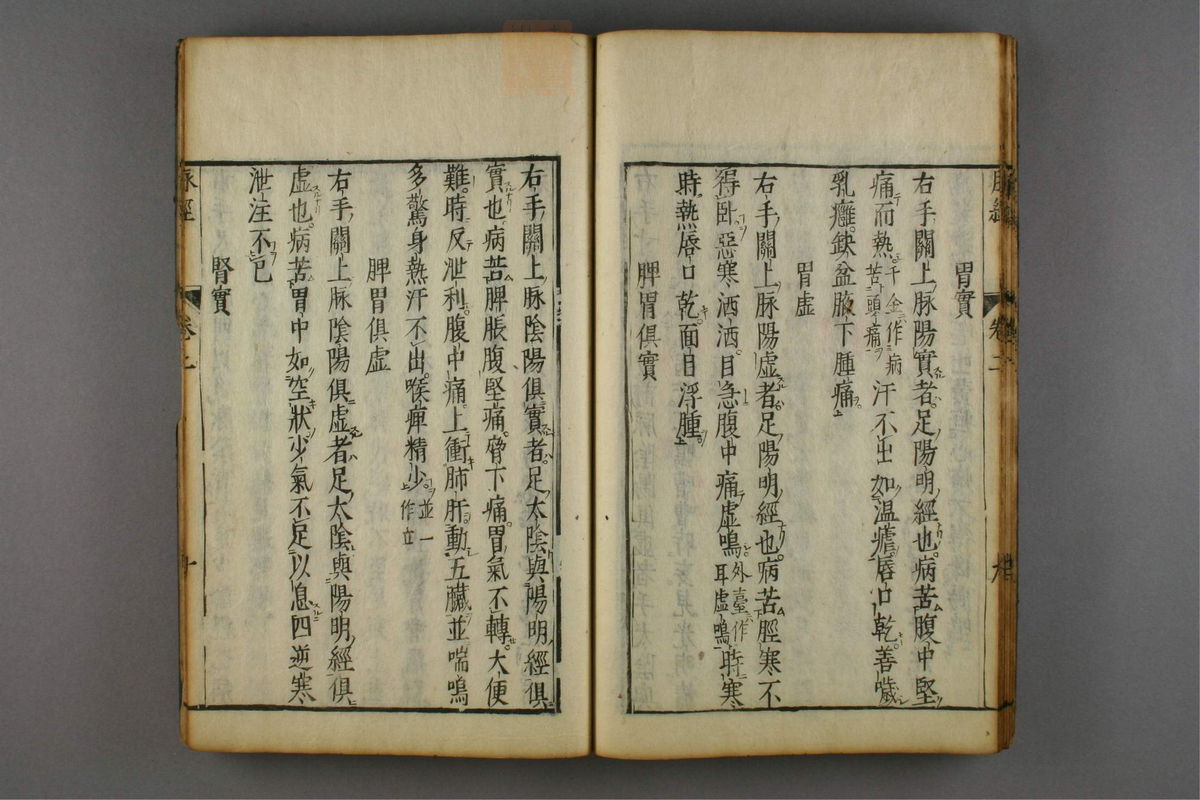 胃實
右手關上脉陽實者足陽明經也病苦腹中堅
痛而熱千金作病苦頭痛汗不出如温瘧唇口乾善噦
乳癰缺盆腋下腫痛
胃虛
右手關上脉陽虛者足陽明經也病苦脛寒不
得卧惡寒洒洒目急腹中痛虛鳴外臺作耳虛鳴時寒
時熱唇口乾面目浮腫
脾胃俱實
右手關上脉陰陽俱實者足太陰與陽明經俱
實也病苦脾脹腹堅痛脅下痛胃氣不轉大便
難時反泄利腹中痛上衝肺肝動五臟並喘鳴
多驚身熱汗不出喉痺精少並一作立
脾胃俱虛
右手關上脉陰陽俱虛者足太陰與陽明經俱
虛也病苦胃中如空狀少氣不足以息四逆寒
泄注不已
腎實
脉經
卷二